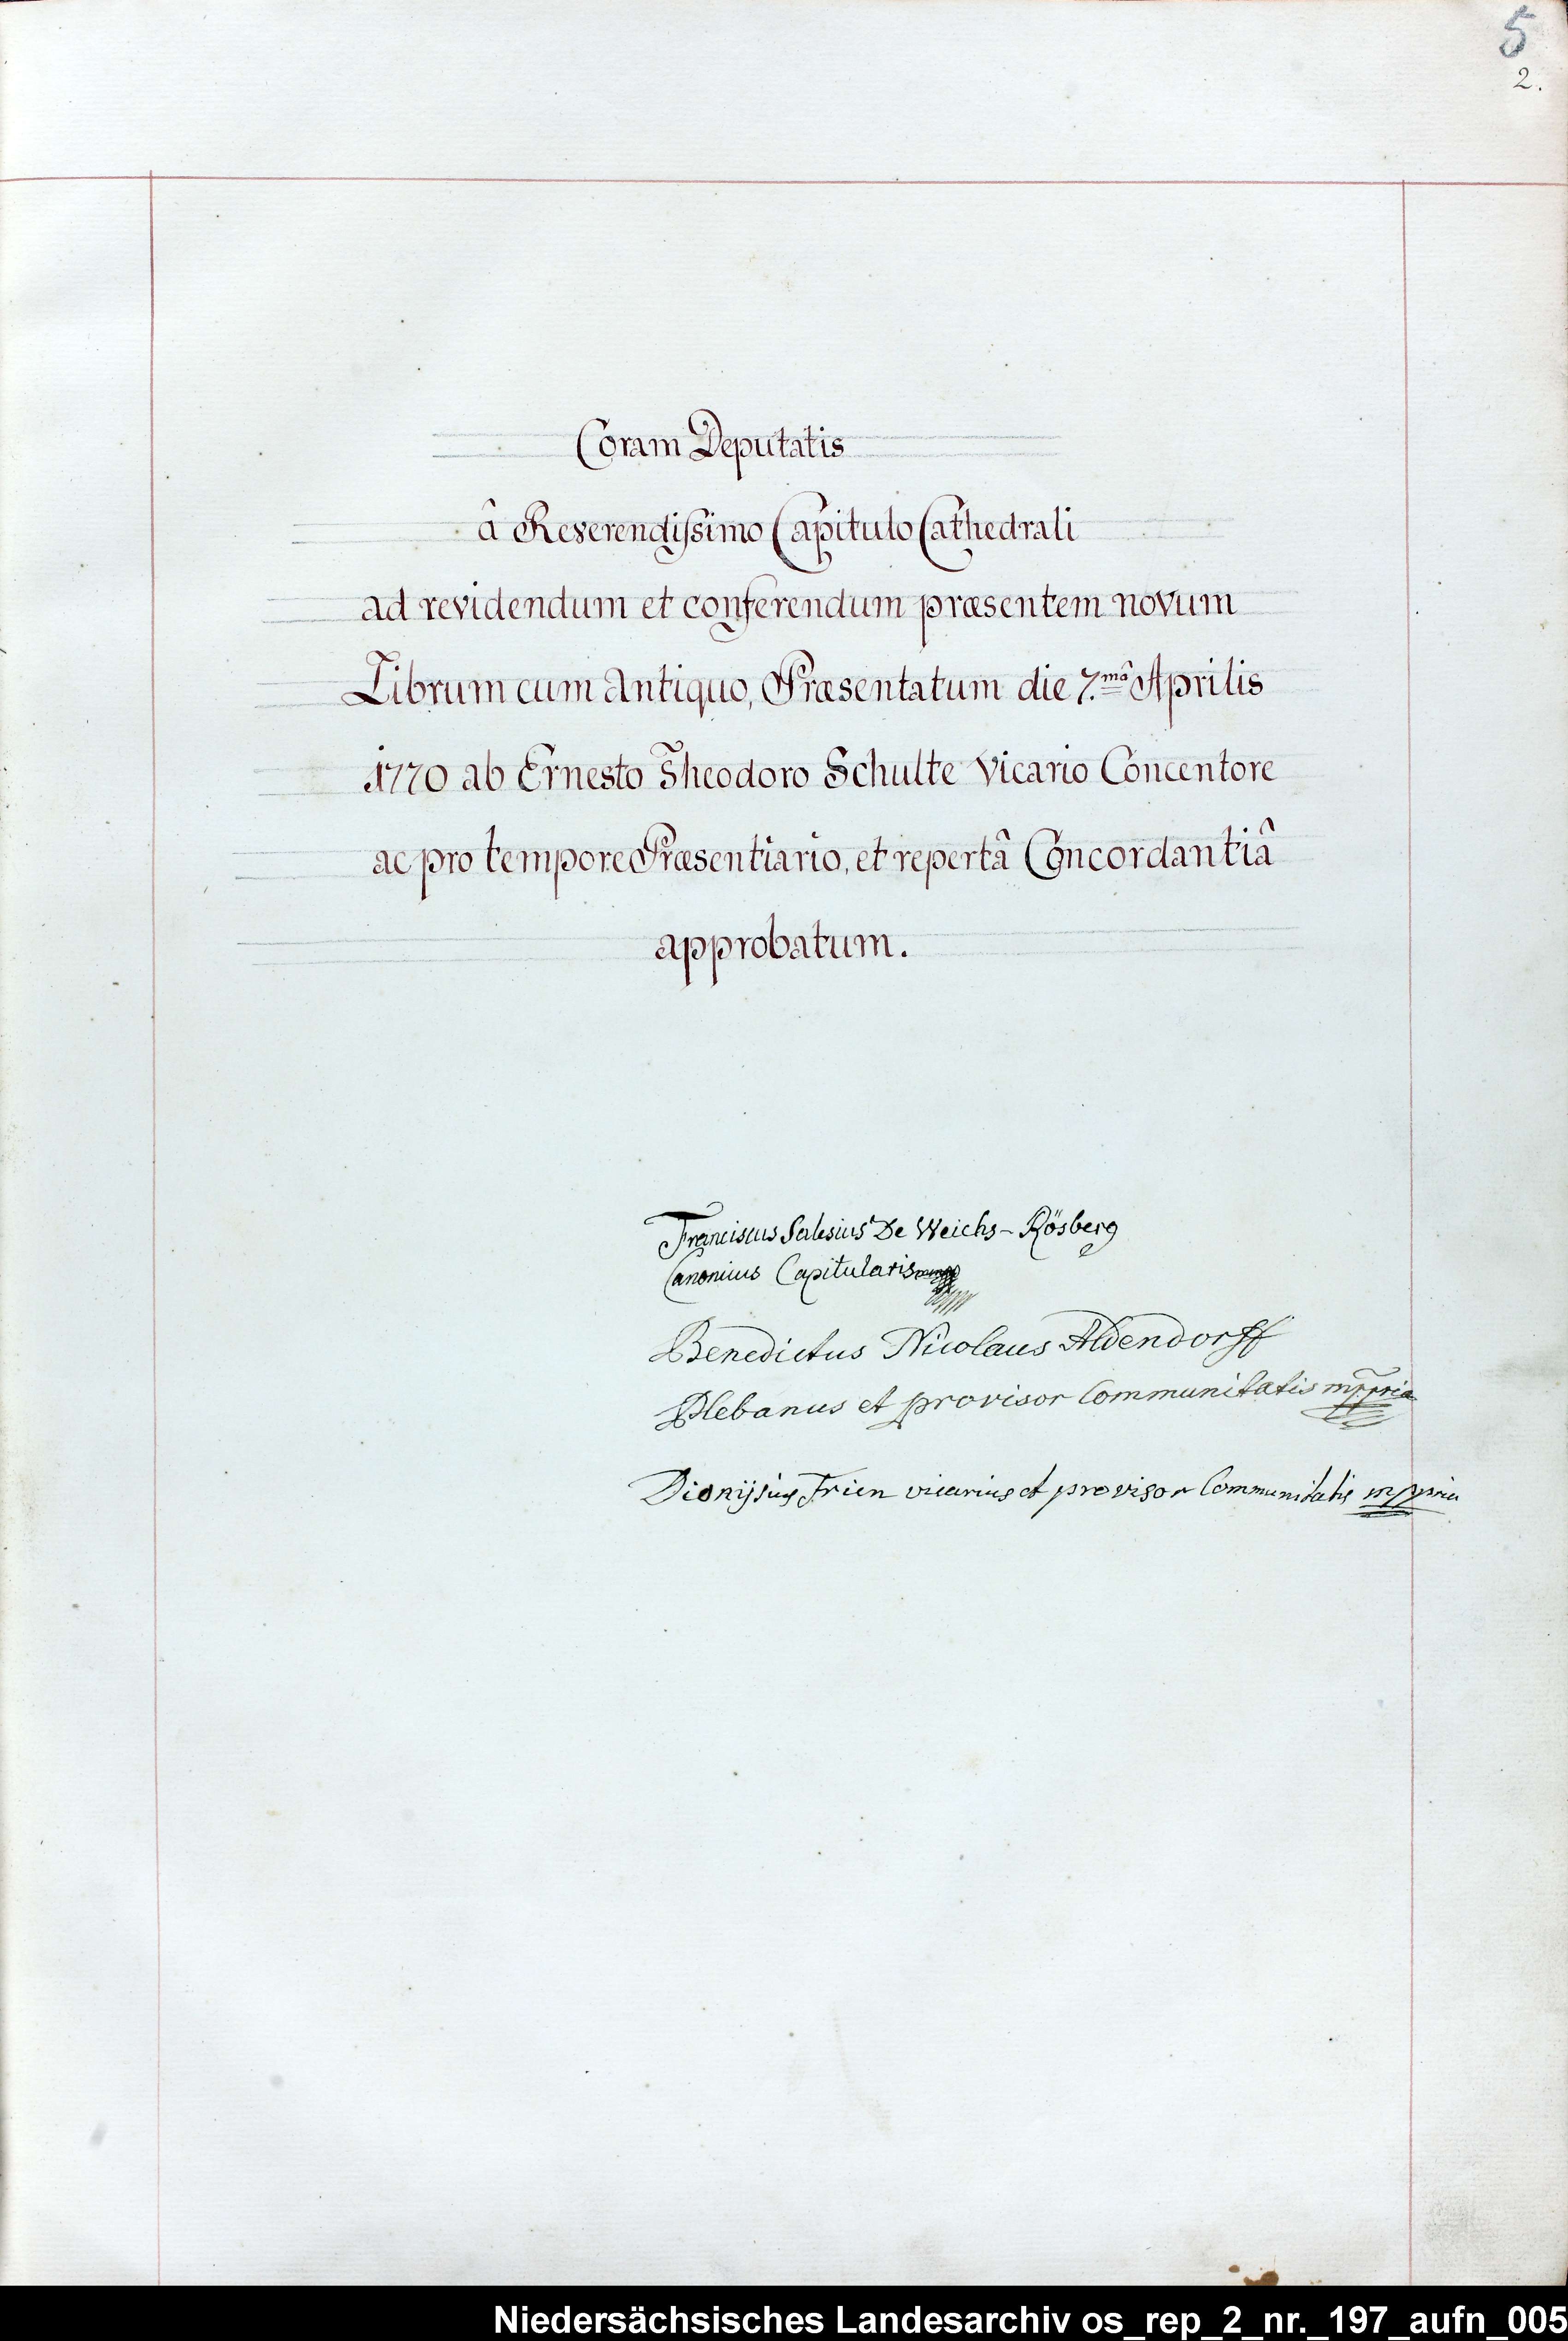 5
2.
Coram Deputatis
â Reverendissimo Capitulo Cathedrali
ad revidendum et conferendum præsentem novum
Librum cum Antiquo, Præsentatum die 7.mâ Aprilis
1770 ab Ernesto Theodoro Schulte Vicario Concentore
ac pro tempore Præsentiario, et repertâ Concordantiâ
approbatum.
Franciscus Salesius De Weichs-Rösberg
Canonicus Capitularis
Benedictus Nicolaus Aldendorff
Plebanus et provisor Communitatis mppria
Dionijsius Frien vicarius et provisor Communitatis mppria
Niedersächsisches Landesarchiv os_rep_2_nr._197_aufn_005